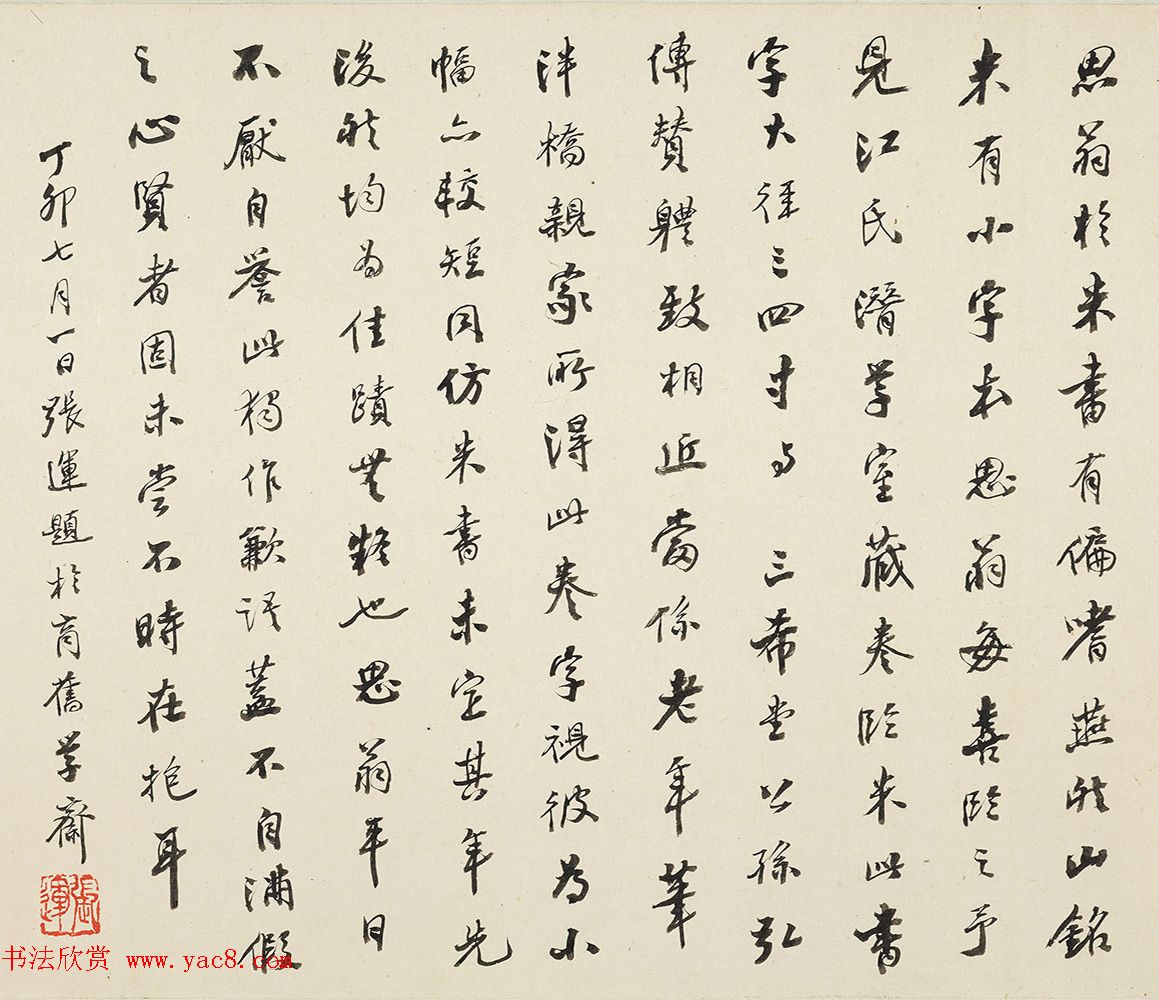 思翁於米書有偏嗜燕然山銘
米有小字本思翁每喜臨之予
見江氏潛學室藏卷臨米此書
字大徑三四寸与 三希堂公孫弘
傳贊體致相近當係老年筆
泮橋親家所得此卷字視彼為小
幅亦較短同仿米書未定其年先
後然均為佳蹟無疑也思翁平日
不厭自譽此獨作歉語蓋不自滿假
之心賢者固未尝不時在抱耳
丁卯七月一日張運題於商舊學齋
張運
书法欣赏 www.yac8.com